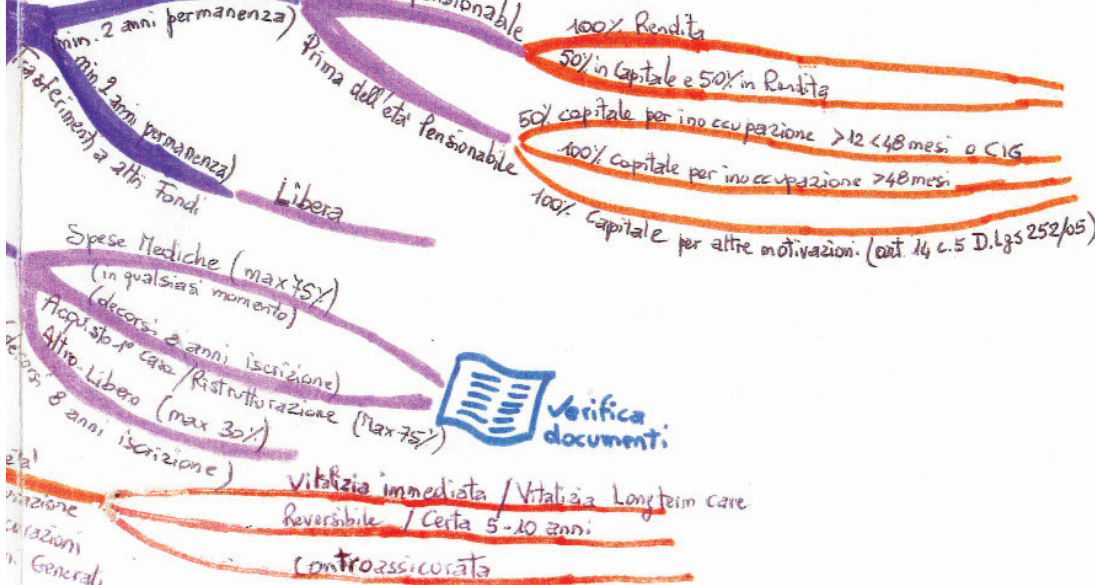 min. 2 anni permanenza)
Pensionabile
100% Rendita
50% in Capitale e 50% in Rendita
Prima dell'età Pensionabile
50% capitale per inoccupazione >12 <48 mesi o CIG
100% capitale per inoccupazione >48 mesi
100% Capitale per altre motivazioni (art. 14 c.5 D.lgs 252/05)
min 2 anni permanenza)
Trasferimenti a altri Fondi
Libera
Spese Mediche (max 75%)
(in qualsiasi momento)
(decorsi 8 anni iscrizione)
Acquisto 1° casa / Ristrutturazione (Max 75%)
Altro-Libero (max 30%)
(decorsi 8 anni iscrizione)
Verifica
documenti
Vitalizia immediata / Vitalizia Longterm care
Reversibile / Certa 5-10 anni
Controassicurata
Generali